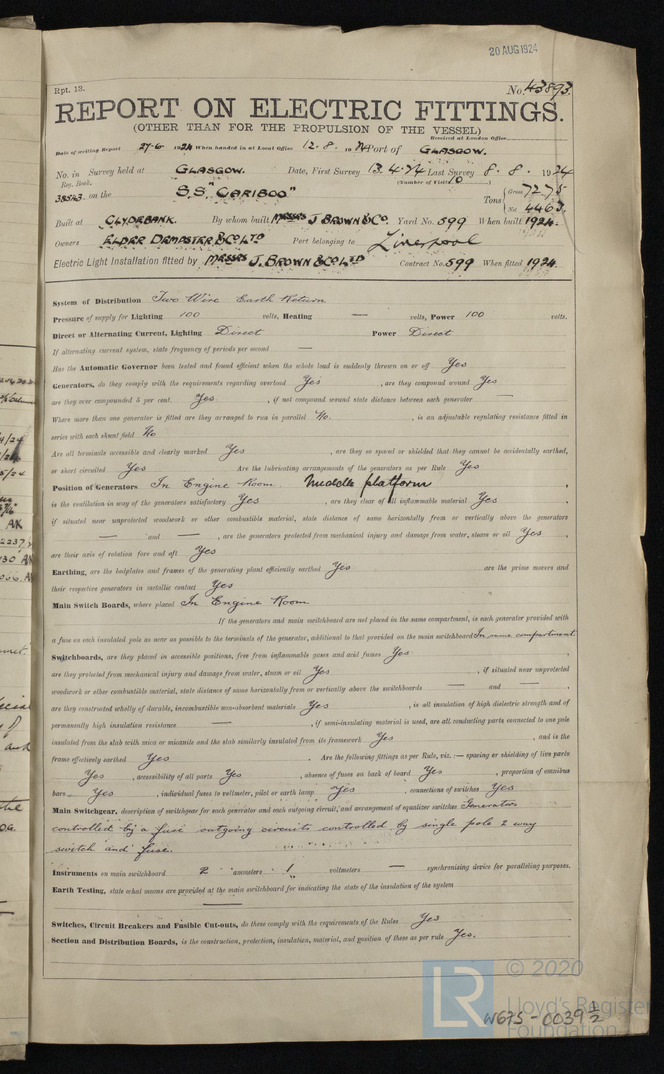 20 AUG 1924
Rpt. 13.
No. 43893.
REPORT ON ELECTRIC FITTINGS.
(OTHER THAN FOR THE PROPULSION OF THE VESSEL)
Received at London Office
Date of writing Report 27-6 1924 When handed in at Local Office 12.8. 1924 Port of GLASGOW.
No. in Survey held at GLASGOW. Date, First Survey 13.4.24 Last Survey 8.8.1924
Reg. Book. (Number of Visits 10)
38543 on the S.S. "CARIBOO" Tons { Gross 7275 Net 4463.
Built at CLYDEBANK. By whom built MESSRS J. BROWN & CO. Yard No. 599 When built 1924.
Owners ELDER DEMPSTER & CO LTD Port belonging to Liverpool
Electric Light Installation fitted by MESSRS J. BROWN & CO LTD Contract No. 599 When fitted 1924.
System of Distribution Two Wire Earth Return
Pressure of supply for Lighting 100 volts, Heating — volts, Power 100 volts.
Direct or Alternating Current, Lighting Direct Power Direct
If alternating current system, state frequency of periods per second —
Has the Automatic Governor been tested and found efficient when the whole load is suddenly thrown on or off Yes
Generators, do they comply with the requirements regarding overload Yes, are they compound wound Yes
are they over compounded 5 per cent. Yes, if not compound wound state distance between each generator —
Where more than one generator is fitted are they arranged to run in parallel No., is an adjustable regulating resistance fitted in
series with each shunt field No
Are all terminals accessible and clearly marked Yes, are they so spaced or shielded that they cannot be accidentally earthed,
or short circuited Yes Are the lubricating arrangements of the generators as per Rule Yes
Position of Generators In Engine Room. Middle platform,
is the ventilation in way of the generators satisfactory Yes, are they clear of all inflammable material Yes,
if situated near unprotected woodwork or other combustible material, state distance of same horizontally from or vertically above the generators
— and —, are the generators protected from mechanical injury and damage from water, steam or oil Yes,
are their axis of rotation fore and aft Yes
Earthing, are the bedplates and frames of the generating plant efficiently earthed Yes are the prime movers and
their respective generators in metallic contact Yes
Main Switch Boards, where placed In Engine Room
If the generators and main switchboard are not placed in the same compartment, is each generator provided with
a fuse on each insulated pole as near as possible to the terminals of the generator, additional to that provided on the main switchboard In same compartment
Switchboards, are they placed in accessible positions, free from inflammable gases and acid fumes Yes,
are they protected from mechanical injury and damage from water, steam or oil Yes, if situated near unprotected
woodwork or other combustible material, state distance of same horizontally from or vertically above the switchboards — and —,
are they constructed wholly of durable, incombustible non-absorbent materials Yes, is all insulation of high dielectric strength and of
permanently high insulation resistance —, if semi-insulating material is used, are all conducting parts connected to one pole
insulated from the slab with mica or micanite and the slab similarly insulated from its framework Yes, and is the
frame effectively earthed Yes. Are the following fittings as per Rule, viz.:— spacing or shielding of live parts
Yes, accessibility of all parts Yes, absence of fuses on back of board Yes, proportion of omnibus
bars Yes, individual fuses to voltmeter, pilot or earth lamp Yes, connections of switches Yes
Main Switchgear, description of switchgear for each generator and each outgoing circuit, and arrangement of equalizer switches Generators
controlled by a fuse outgoing circuits controlled by single pole 2 way
switch and fuse.
Instruments on main switchboard 2 ammeters 1 voltmeters — synchronising device for paralleling purposes.
Earth Testing, state what means are provided at the main switchboard for indicating the state of the insulation of the system
—
Switches, Circuit Breakers and Fusible Cut-outs, do these comply with the requirements of the Rules Yes
Section and Distribution Boards, is the construction, protection, insulation, material, and position of these as per rule Yes.
LR © 2020
Lloyd's Register
Foundation
W675-0039 1/2